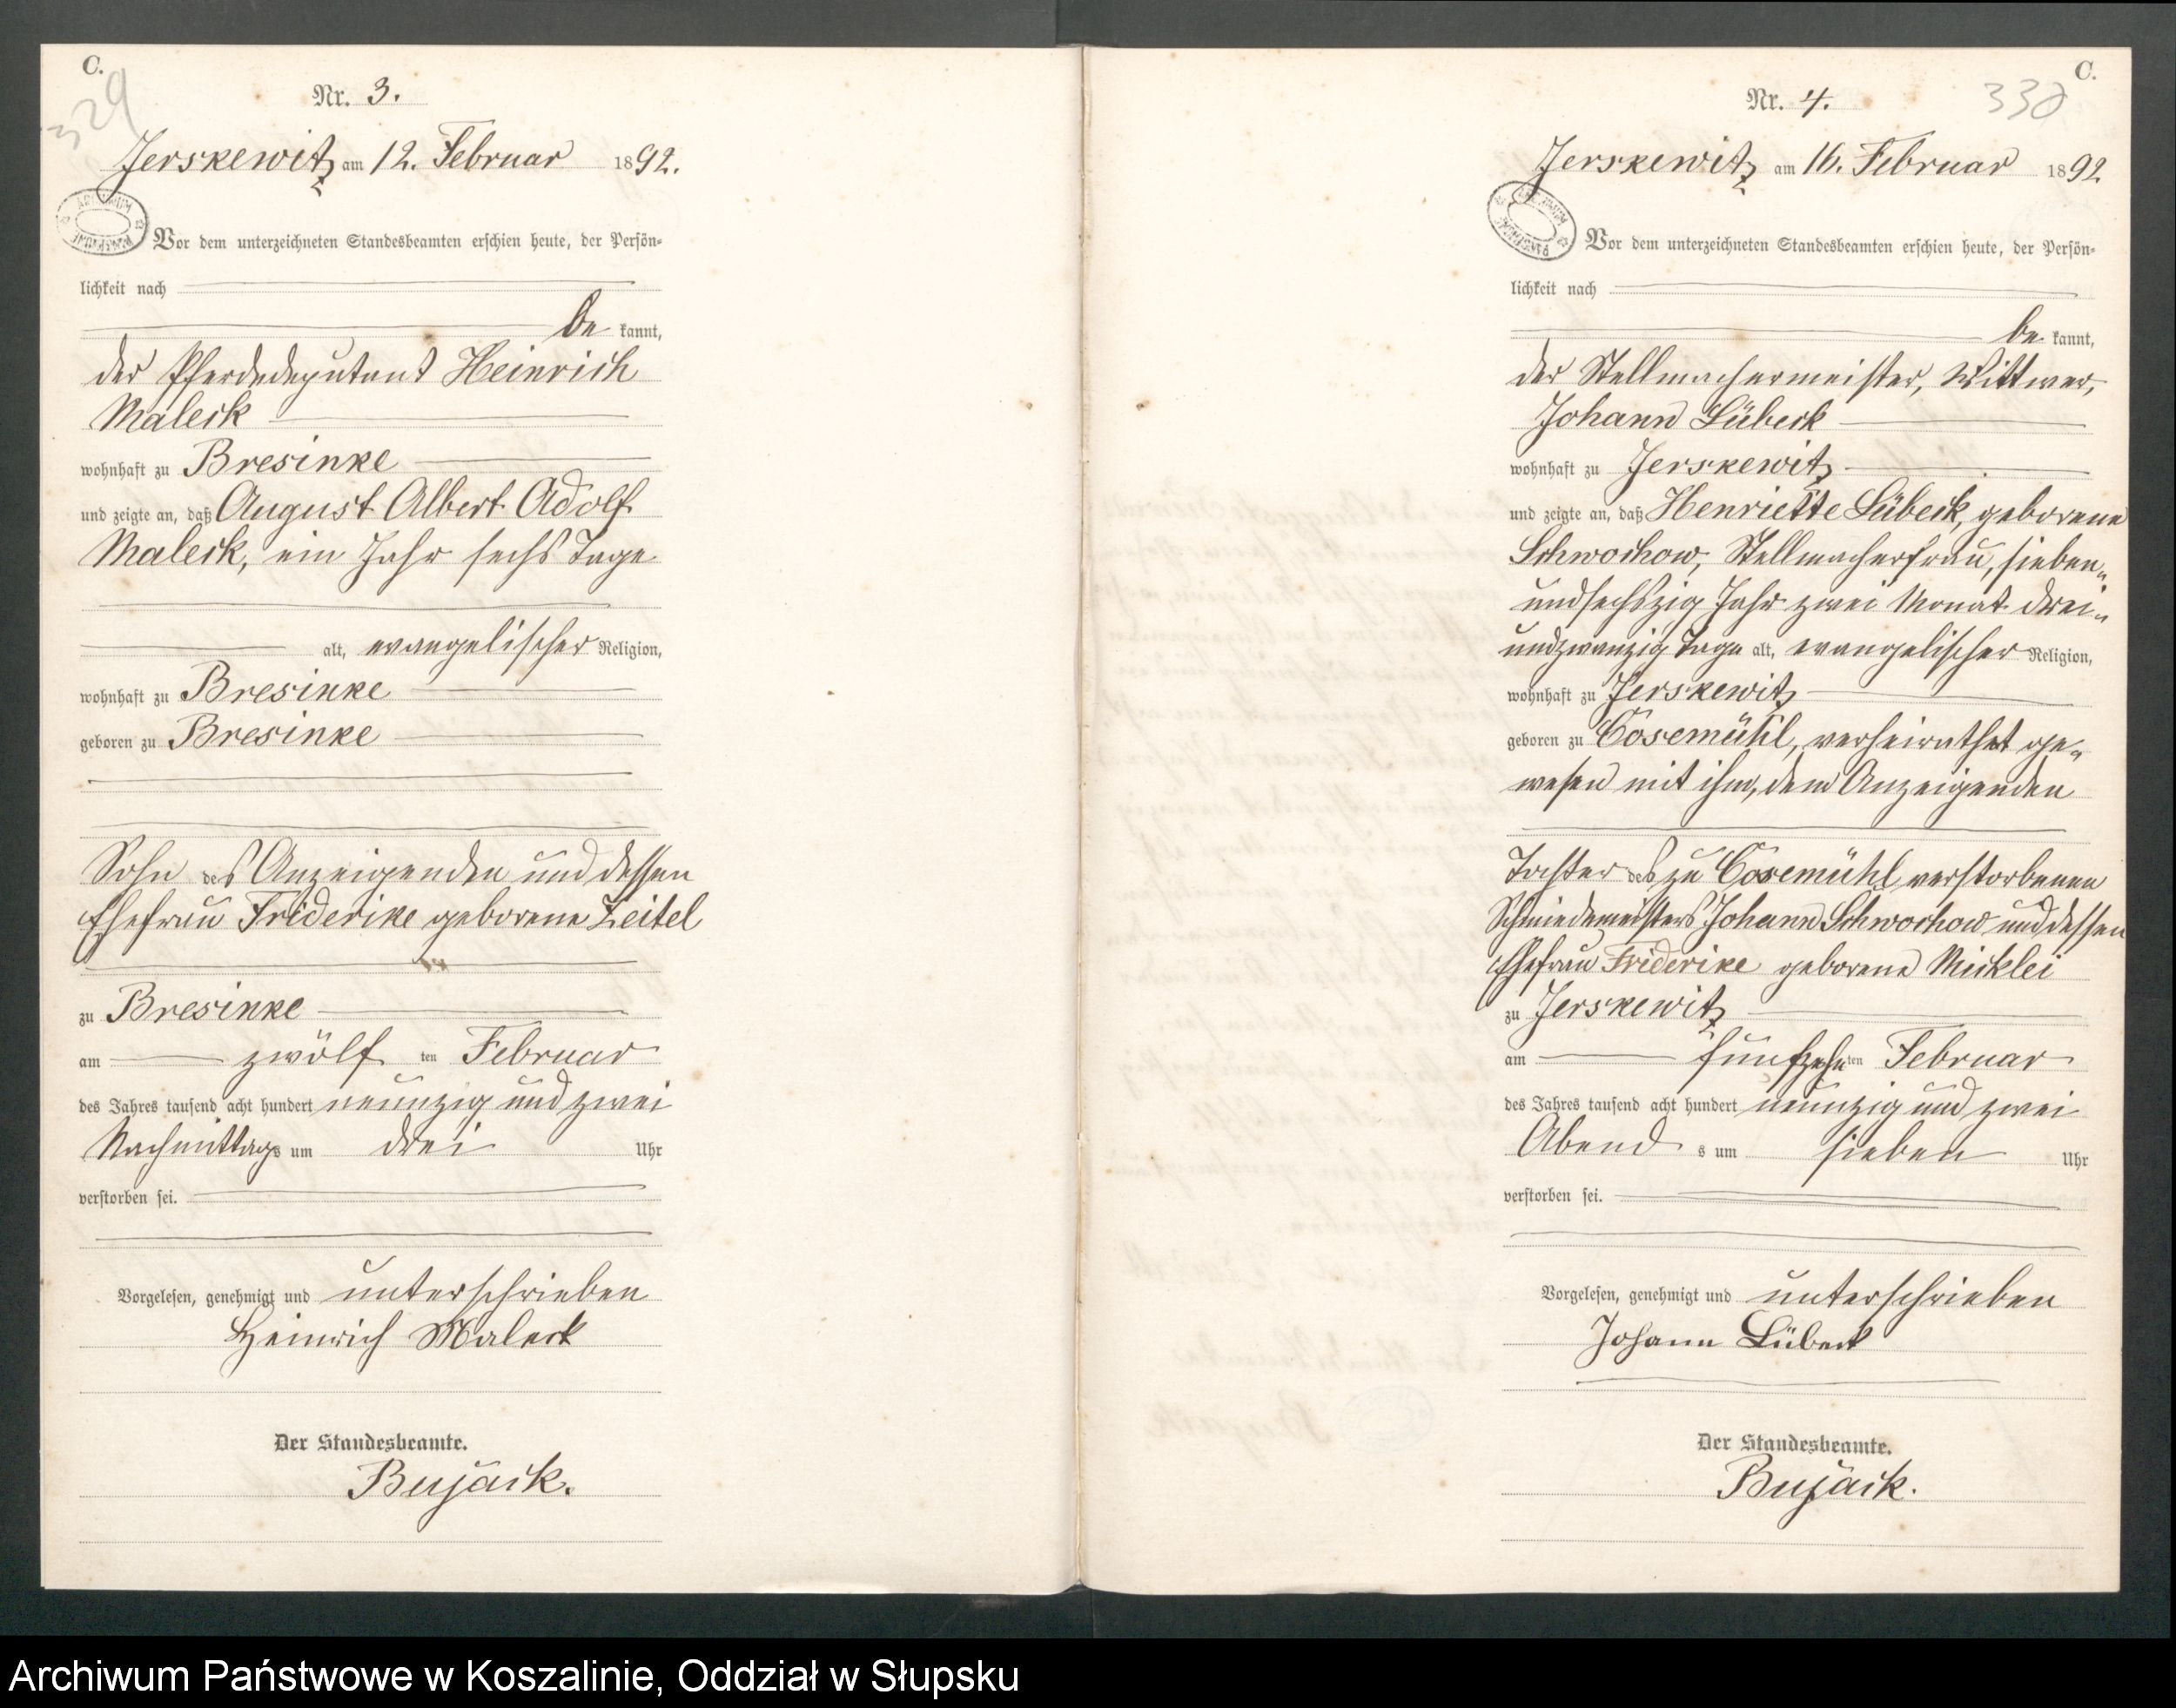 C.
329
Nr. 3.
Jerskewitz am 12. Februar 1892.
Vor dem unterzeichneten Standesbeamten erschien heute, der Persön-
lichkeit nach
be kannt,
der Pferdedeputant Heinrich
Maleck
wohnhaft zu Bresinke
und zeigte an, daß August Albert Adolf
Maleck, ein Jahr sechs Tage
alt, evangelischer Religion,
wohnhaft zu Bresinke
geboren zu Bresinke
Sohn des Anzeigenden und dessen
Ehefrau Friderike geborene Zeitel
zu Bresinke
am zwölf ten Februar
des Jahres tausend acht hundert neunzig und zwei
Nachmittags um drei Uhr
verstorben sei.
Vorgelesen, genehmigt und unterschrieben
Heinrich Maleck
Der Standesbeamte.
Bujack.
C.
330
Nr. 4.
Jerskewitz am 16. Februar 1892
Vor dem unterzeichneten Standesbeamten erschien heute, der Persön-
lichkeit nach
be kannt,
der Stellmachermeister, Wittwer,
Johann Lübeck
wohnhaft zu Jerskewitz
und zeigte an, daß Henriette Lübeck, geborene
Schwochow, Stellmacherfrau, sieben-
undsechszig Jahr zwei Monat drei-
undzwanzig Tage alt, evangelischer Religion,
wohnhaft zu Jerskewitz
geboren zu Cosemühl, verheirathet ge-
wesen mit ihm, dem Anzeigenden
Tochter des zu Cosemühl verstorbenen
Schmiedemeisters Johann Schwochow und dessen
Ehefrau Friderike geborene Micklei
zu Jerskewitz
am fünfzehn ten Februar
des Jahres tausend acht hundert neunzig und zwei
Abend s um sieben Uhr
verstorben sei.
Vorgelesen, genehmigt und unterschrieben
Johann Lübeck
Der Standesbeamte.
Bujack.
Archiwum Państwowe w Koszalinie, Oddział w Słupsku